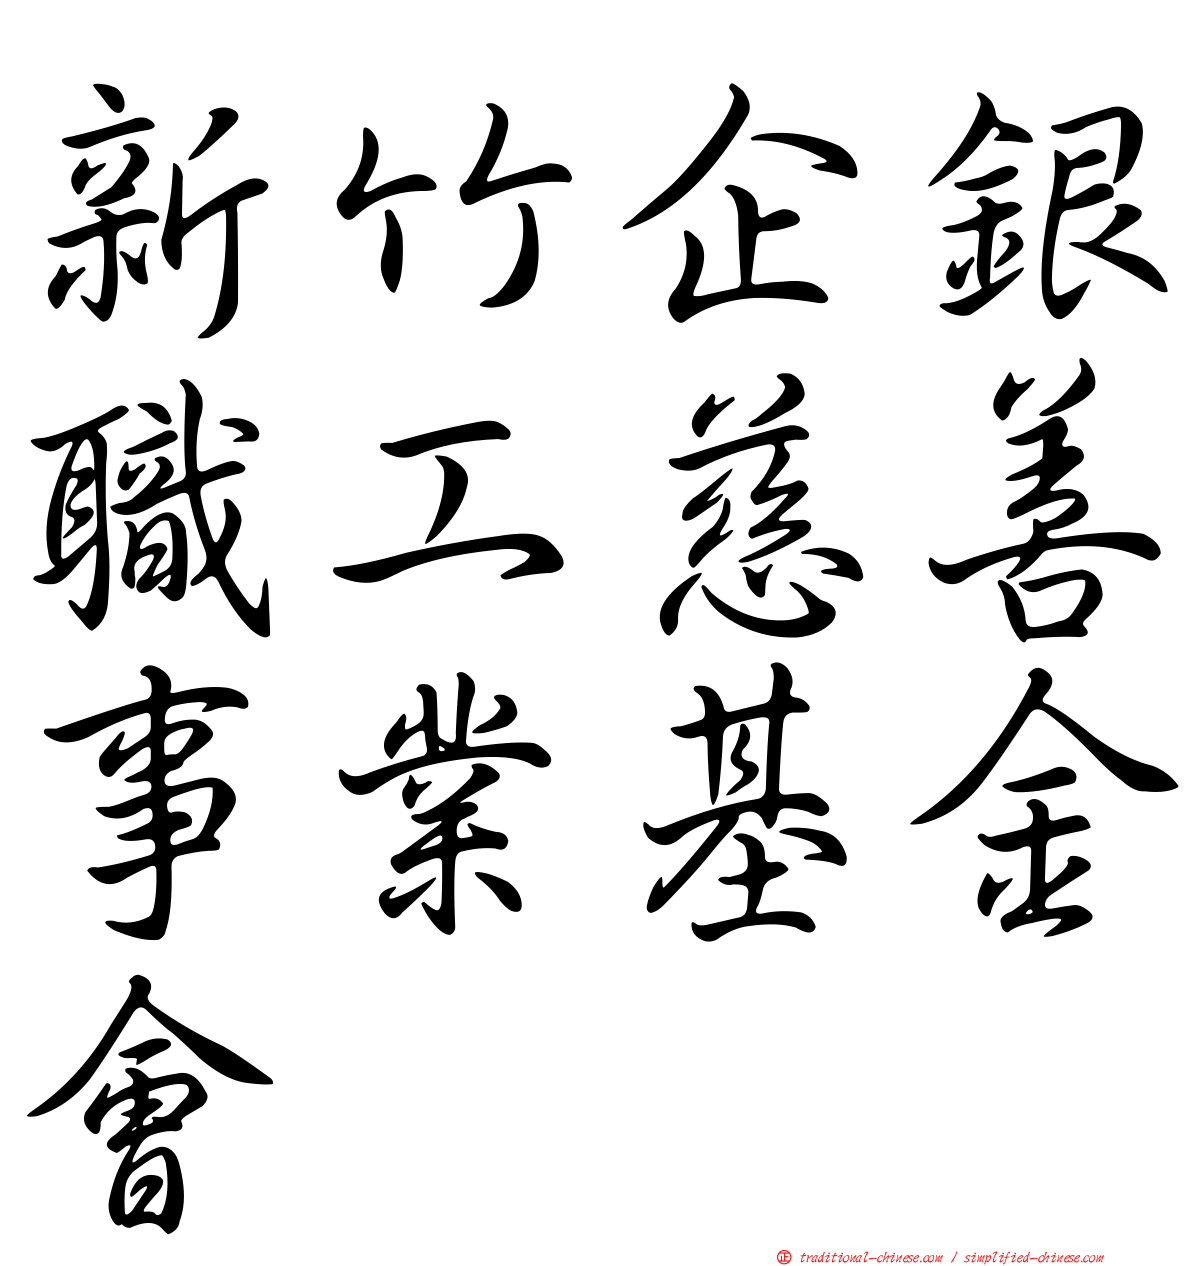 新竹企銀
職工慈善
事業基金
會
正 traditional-chinese.com / simplified-chinese.com